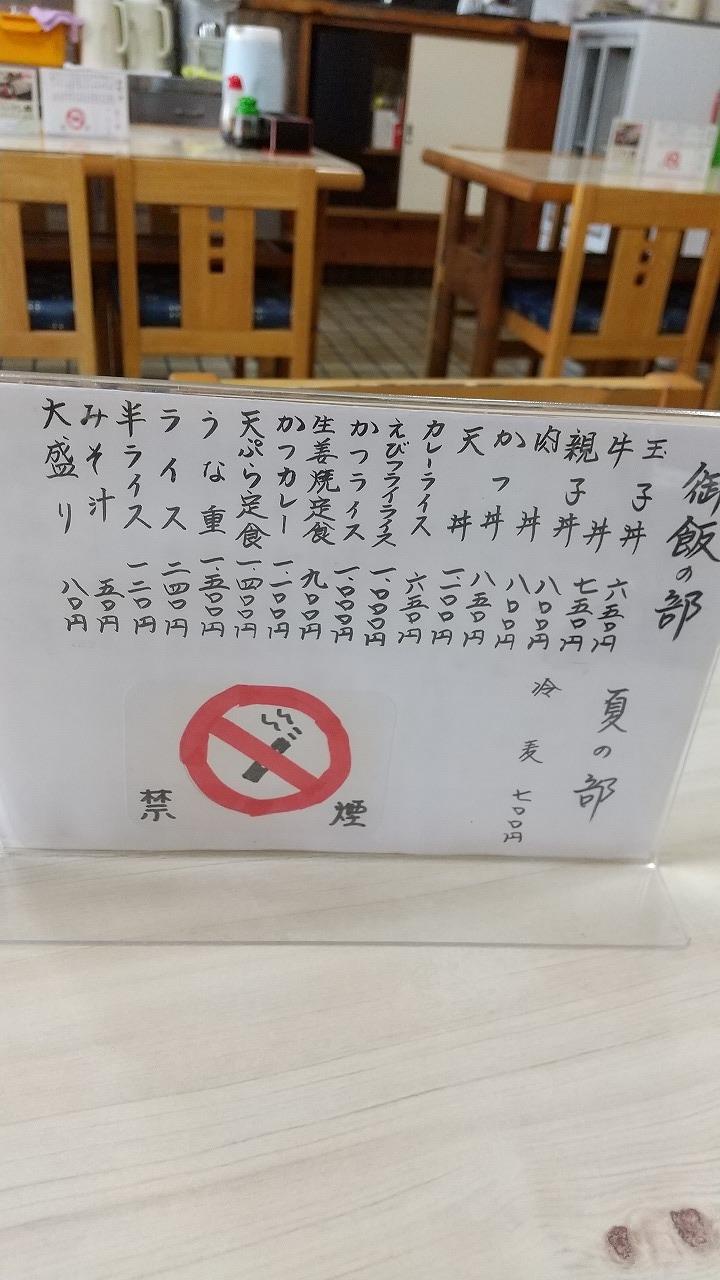 御飯の部
玉子丼 六五〇円
牛丼 七五〇円
親子丼 八〇〇円
肉丼 八〇〇円
かつ丼 八五〇円
天丼 一、一〇〇円
カレーライス 六五〇円
えびフライライス 一、〇〇〇円
かつライス 一、〇〇〇円
生姜焼定食 九〇〇円
かつカレー 一、一〇〇円
天ぷら定食 一、四〇〇円
うな重 一、五〇〇円
ライス 二四〇円
半ライス 一二〇円
みそ汁 五〇円
大盛り 八〇円
夏の部
冷麦 七〇〇円
禁煙